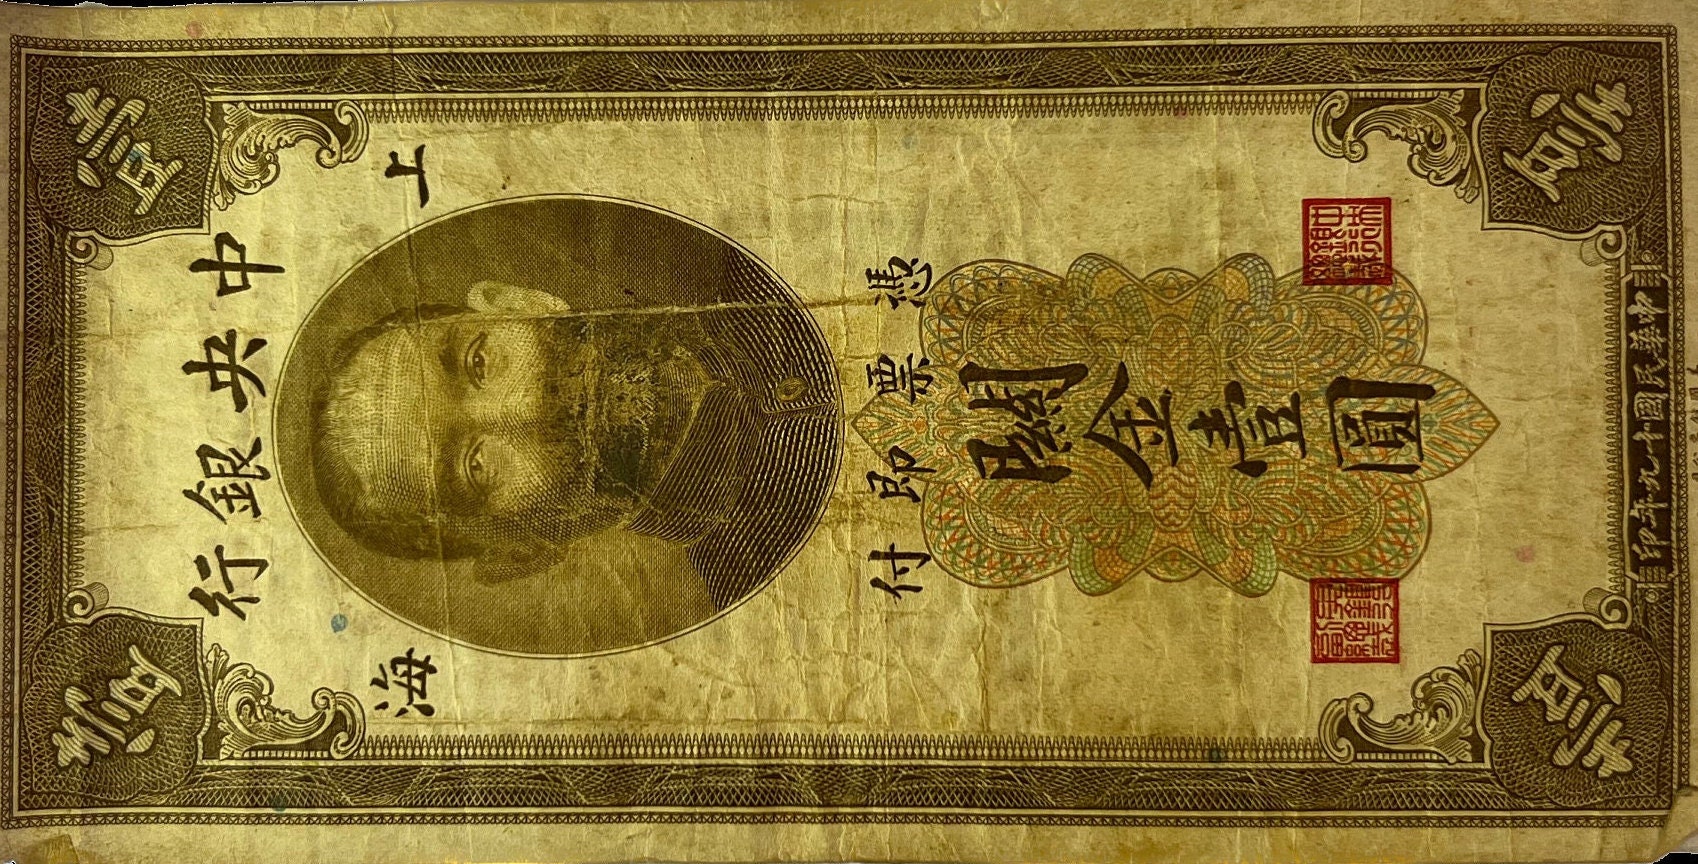 壹 壹
中央銀行
上海
憑票即付
關金壹圓
壹 壹
中華民國十九年印